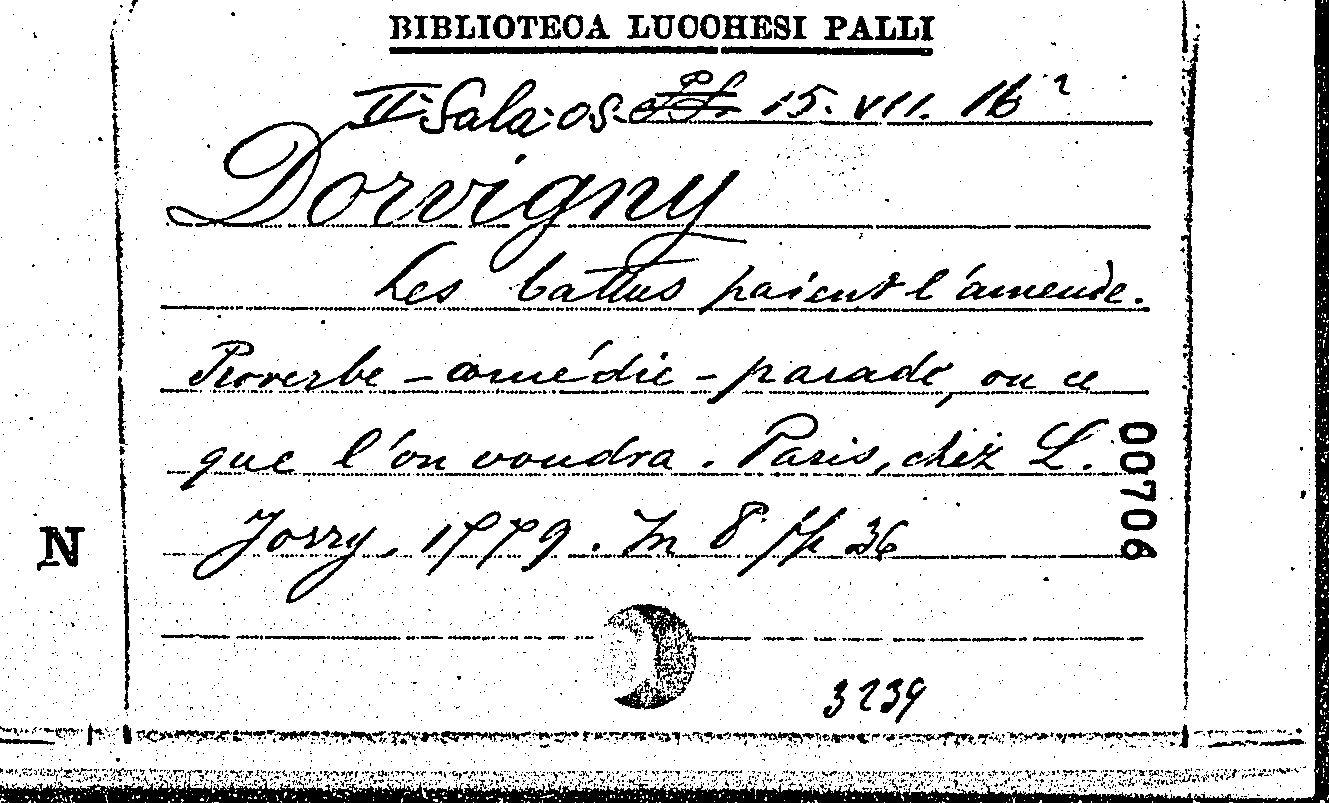 BIBLIOTECA LUCCHESI PALLI
II Sala os. 15. VII. 16²
Dorvigny
Les battus paient l'amende.
Proverbe - comédie - parade, ou ce
que l'on voudra. Paris, chez L.
Jorry, 1779. In 8 pp 36
00706
N
3239